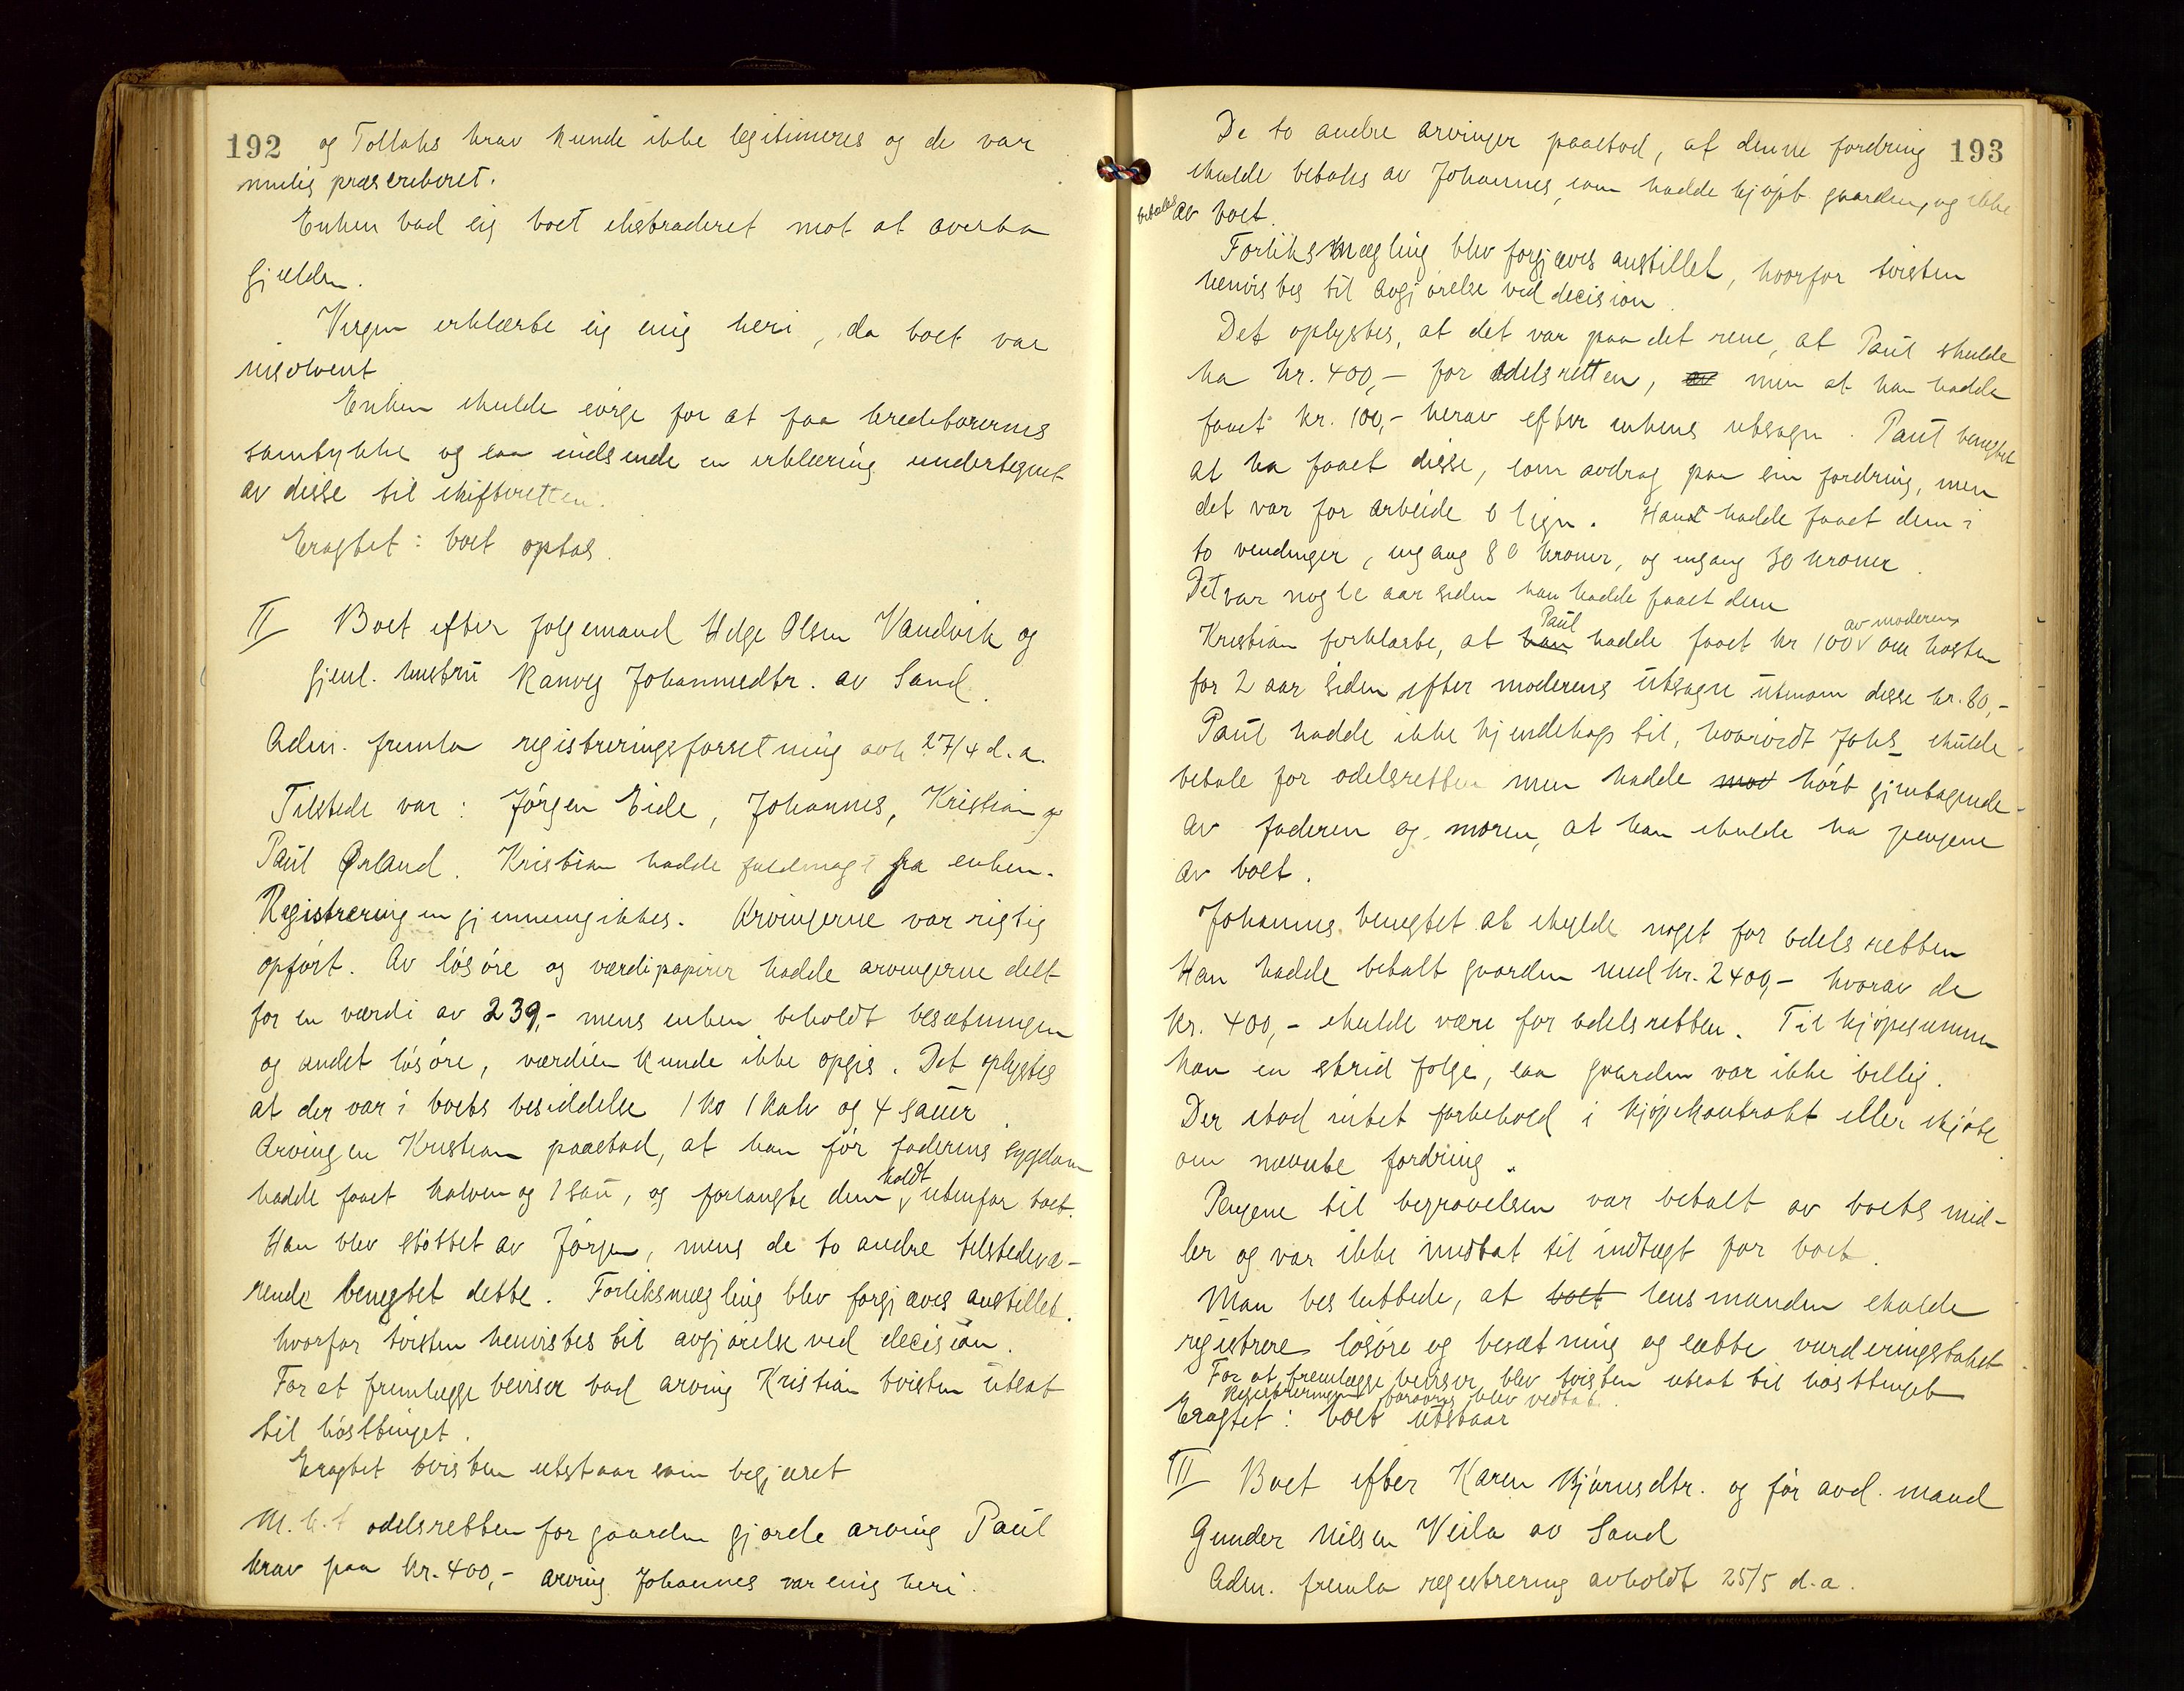 192
og Tollaks krav kunde ikke legitimeres og de var
mulig præscriberet.
Enken bad sig boet ekstraderet mot at overta
gjælden.
Vergen erklærte sig enig heri, da boet var
insolvent
Enken skulde sörge for at faa kreditorernes
samtykke og saa indsende en erklæring undertegnet
av disse til skifteretten.
Eragtet: boet optas.
II Boet efter folgemand Helge Olsen Vandvik og
gjenl. hustru Ranveg Johannesdtr. av Sand.
Adm. fremla registreringsforretning avh 27/4 d.a.
Tilstede var: Jörgen Eide, Johannes, Kristian og
Paul Ørland. Kristian hadde fuldmagt fra enken.
Registreringen gjennemgikkes. Arvingerne var rigtig
opfört. Av lösöre og værdipapirer hadde arvingerne delt
for en værdi av 239,- mens enken beholdt besætningen
og andet lösöre, værdien kunde ikke opgis. Det oplystes
at der var i boets besiddelse 1 ko 1 kalv og 4 sauer.
Arvingen Kristian paastod, at han för faderens sygdom
hadde faaet kalven og 1 sau, og forlangte dem holdt utenfor boet.
Han blev stöttet av Jörgen, mens de to andre tilstedevæ-
rende benegtet dette. Forliksmægling blev forgjæves anstillet.
hvorfor tvisten henvistes til avgjörelse ved decision.
For at fremlægge beviser bad arving Kristian tvisten utsat
til hösttinget.
Eragtet tvisten utstaar som begjæret
M.h.t odelsretten for gaarden gjorde arving Paul
krav paa kr. 400,- arving Johannes var enig heri.
193
De to andre arvinger paastod, at denne fordring
skulde betales av Johannes, som hadde kjöpt gaarden, og ikke
betales av boet.
Forliksmægling blev forgjæves anstillet, hvorfor tvisten
henvistes til avgjörelse ved decision.
Det oplystes, at det var paa det rene, at Paul skulde
ha kr. 400,- for odelsretten, av men at han hadde
faaet kr. 100,- herav efter enkens utsagn. Paul benegtet
at ha faaet disse, som avdrag paa sin fordring, men
det var for arbeide o lign. Han hadde faaet dem i
to vendinger, engang 80 kroner, og engang 30 kroner.
Det var nogle aar siden han hadde faaet dem
Kristian forklarte, at han Paul hadde faaet kr 100 av moderen om hösten
for 2 aar siden efter moderens utsagn utenom disse kr. 80,-
Paul hadde ikke kjendskap til, hvorvidt Johs skulde
betale for odelsretten men hadde mod hört gjentagende
av faderen og moren, at han skulde ha pengene
av boet.
Johannes benegtet at skylde noget for odelsretten
Han hadde betalt gaarden med kr. 2400,- hvorav de
kr. 400,- skulde være for odelsretten. Til kjöpesummen
kom en strid folge, saa gaarden var ikke billig.
Der stod intet forbehold i kjöpekontrakt eller skjöte
om nævnte fordring.
Pengene til begravelsen var betalt av boets mid-
ler og var ikke medtat til indtægt for boet.
Man besluttede, at boet lensmanden skulde
registrere lösöre og besætning og sætte vurderingstakst
For at fremlægge beviser blev tvisten utsat til hösttinget
Registreringen forövrig blev vedtat.
Eragtet: boet utstaar
III Boet efter Karen Björnsdtr. og för avd. mand
Gunder Nilsen Veila av Sand
Adm. fremla registrering avholdt 25/5 d.a.